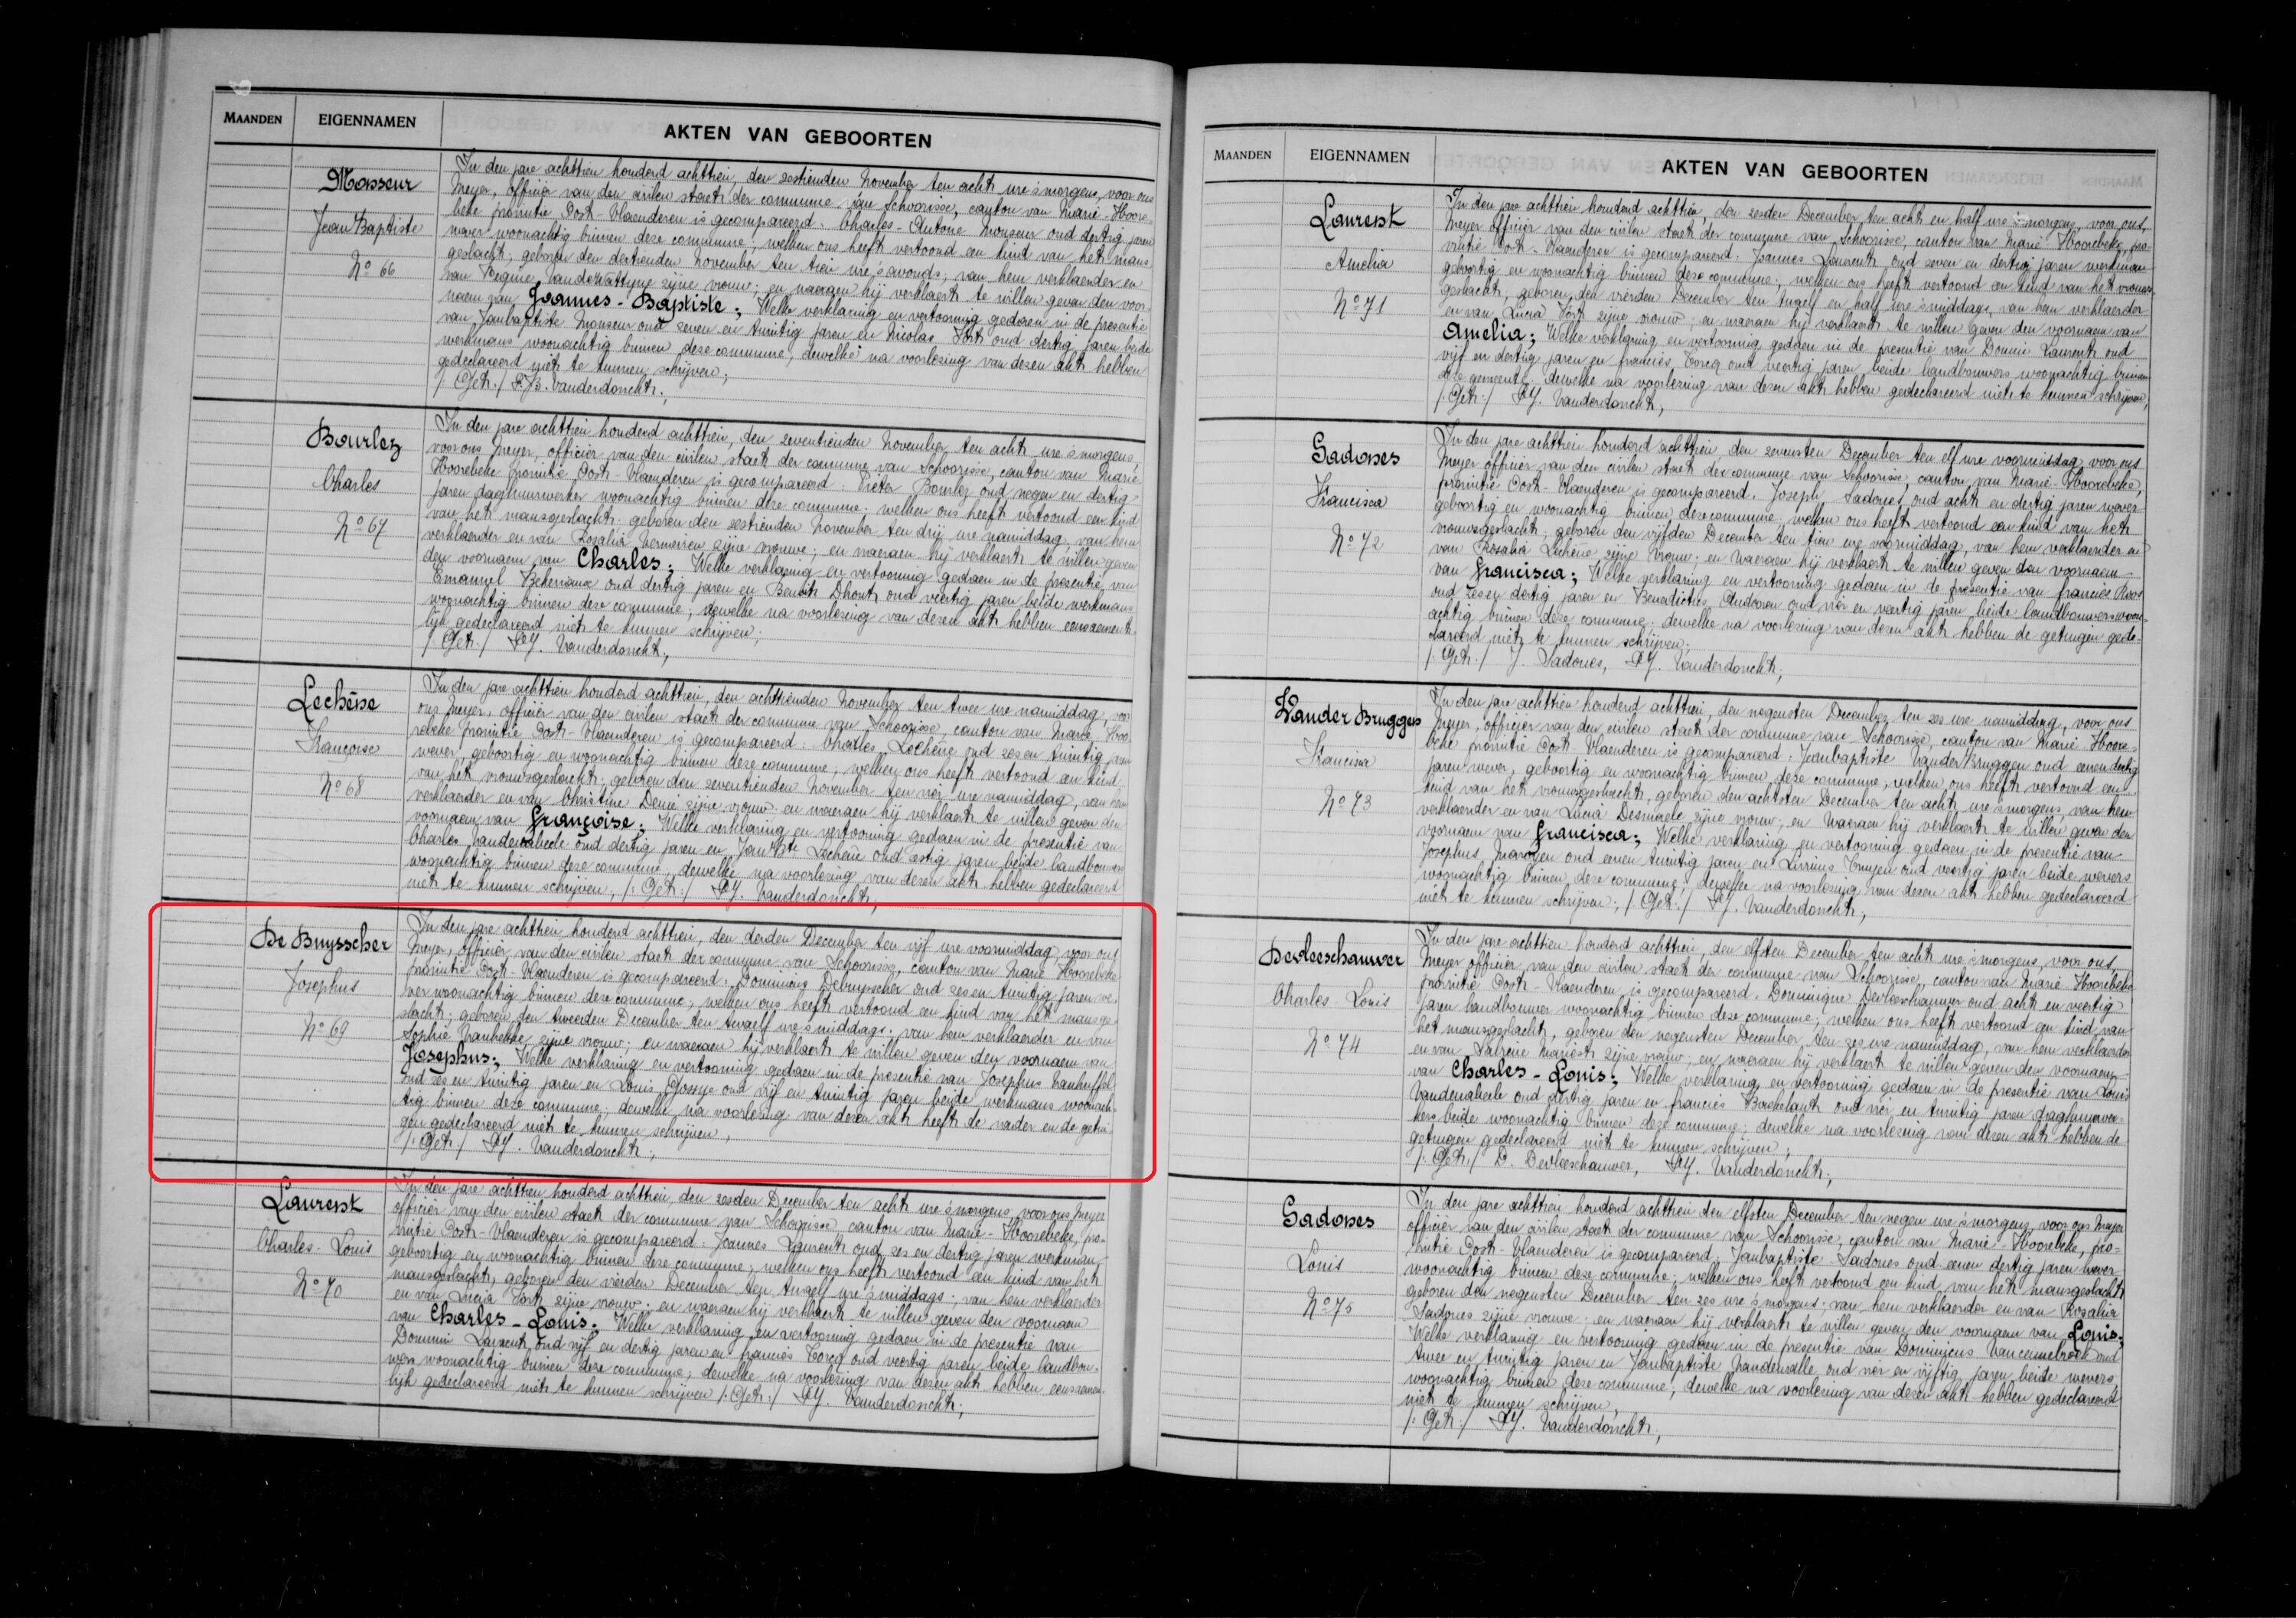 MAANDEN
EIGENNAMEN
AKTEN VAN GEBOORTEN
Monseur
Jean Baptiste
No 66
In den jare achttien honderd achttien, den zestienden November ten acht ure s'morgens, voor ons
Meyer, officier van den civilen staet der commune van Schoorisse, canton van Marie-Hoore-
beke provintie Oost-Vlaenderen is gecompareerd: Charles-Antone Monseur oud dertig jaren
wever woonachtig binnen deze commune; welken ons heeft vertoond een kind van het mans
geslacht; geboren den dertienden November ten tien ure s'avonds; van hem verklaerder en
van Regine Vanderstattyne zijne vrouw; en waeraen hij verklaert te willen geven den voor-
naem van Joannes-Baptiste; Welke verklaring en vertooning gedaen in de presentie
van Janbaptiste Monseur oud zeven en twintig jaren en Nicolas Fort oud dertig jaren beide
werkmans woonachtig binnen deze commune, dewelke na voorlezing van dezen akt hebben
gedeclareerd niet te kunnen schrijven;
/: Get:/ F.B. Vanderdonckt;
Bourlez
Charles
No 67
In den jare achttien honderd achttien, den zeventienden November ten acht ure s'morgens,
voor ons Meyer, officier van den civilen staet der commune van Schoorisse, canton van Marie
Hoorebeke provintie Oost-Vlaenderen is gecompareerd: Pieter Bourlez oud negen en dertig
jaren daghuurwerker woonachtig binnen deze commune; welken ons heeft vertoond een kind
van het mansgeslacht; geboren den zestienden November ten drij ure namiddag, van hem
verklaerder en van Rosalia Vermeiren zijne vrouwe; en waeraen hij verklaert te willen geven
den voornaem van Charles; Welke verklaring en vertooning gedaen in de presentie van
Emanuel oud dertig jaren en Benoit Dhont oud veertig jaren beide werkmans
woonachtig binnen deze commune; dewelke na voorlezing van dezen akt hebben eensament-
lijk gedeclareerd niet te kunnen schrijven;
/: Get:/ P.J. Vanderdonckt;
Lechêne
Françoise
No 68
In den jare achttien honderd achttien, den achttienden November ten twee ure namiddag, voor
ons Meyer, officier van den civilen staet der commune van Schoorisse, canton van Marie, Hoo-
rebeke provintie Oost-Vlaenderen is gecompareerd: Charles Lechêne oud zes en twintig jaren
wever, geboortig en woonachtig binnen deze commune; welken ons heeft vertoond een kind
van het vrouwsgeslacht, geboren den zeventienden November ten vier ure namiddag, van hem
verklaerder en van Christine Devie zijne vrouw en waeraen hij verklaert te willen geven den
voornaem van Françoise; Welke verklaring en vertooning gedaen in de presentie van
Charles Vandenabeele oud dertig jaren en Jan Bte Lechêne oud zestig jaren beide landbouwers
woonachtig binnen deze commune, dewelke na voorlezing van dezen akt hebben gedeclareerd
niet te kunnen schrijven; /: Get:/ P.J. Vanderdonckt;
De Buysscher
Josephus
No 69
In den jare achttien honderd achttien, den derden December ten vijf ure voormiddag, voor ons
Meyer, officier van den civilen staet der commune van Schoorisse, canton van Marie Hoorebeke
provintie Oost-Vlaenderen is gecompareerd: Dominicus Debuysscher oud zes en twintig jaren we-
ver woonachtig binnen deze commune, welken ons heeft vertoond een kind van het mansge-
slacht; geboren den tweeden December ten twaelf ure s'middags; van hem verklaerder en van
Sophie Vanhekke zijne vrouw; en waeraen hij verklaert te willen geven den voornaem van
Josephus; Welke verklaring en vertooning gedaen in de presentie van Josephus Vanhuffel
oud zes en twintig jaren en Louis Glossye oud vijf en twintig jaren beide werkmans woonach-
tig binnen deze commune; dewelke na voorlezing van dezen akt heeft de vader en de getui-
gen gedeclareerd niet te kunnen schrijven;
/: Get:/ P.J. Vanderdonckt;
Laurent
Charles-Louis
No 70
In den jare achttien honderd achttien, den zesden December ten acht ure s'morgens, voor ons Meyer
officier van den civilen staet der commune van Schoorisse, canton van Marie-Hoorebeke, pro-
vintie Oost-Vlaenderen is gecompareerd: Joannes Laurent oud zes en dertig jaren werkman
geboortig en woonachtig binnen deze commune; welken ons heeft vertoond een kind van het
mansgeslacht, geboren den vierden December ten twaelf ure s'middags; van hem verklaerder
en van Lucia Fort zijne vrouw; en waeraen hij verklaert te willen geven den voornaem
van Charles-Louis; Welke verklaring en vertooning gedaen in de presentie van
Dominic Laurent oud vijf en dertig jaren en francies Torcq oud veertig jaren beide landbou-
wers woonachtig binnen deze commune; dewelke na voorlezing van dezen akt hebben eensamen-
lijk gedeclareerd niet te kunnen schrijven /: Get:/ P.J. Vanderdonckt;
MAANDEN
EIGENNAMEN
AKTEN VAN GEBOORTEN
Laurent
Amelia
No 71
In den jare achttien honderd achttien, den zesden December ten acht en half ure s'morgens, voor ons,
Meyer officier van den civilen staet der commune van Schoorisse, canton van Marie Hoorebeke, pro-
vintie Oost-Vlaenderen is gecompareerd: Joannes Laurent oud zeven en dertig jaren werkman
geboortig en woonachtig binnen deze commune; welken ons heeft vertoond een kind van het vrouws-
geslacht, geboren den vierden December ten twaelf en half ure s'middags, van hem verklaerder
en van Lucia Fort zijne vrouw; en waeraen hij verklaert te willen geven den voornaem van
Amelia; Welke verklaring en vertooning gedaen in de presentie van Dominic Laurent oud
vijf en dertig jaren en francies Torcq oud veertig jaren, beide landbouwers woonachtig binnen
deze gemeente, dewelke na voorlezing van dezen akt hebben gedeclareerd niet te kunnen schrijven;
/: Get:/ P.J. Vanderdonckt;
Sadones
Francisca
No 72
In den jare achttien honderd achttien den zevensten December ten elf ure voormiddag, voor ons
Meyer officier van den civilen staet der commune van Schoorisse, canton van Marie-Hoorebeke,
provintie Oost-Vlaenderen is gecompareerd: Joseph Sadones oud acht en dertig jaren wever
geboortig en woonachtig binnen deze commune; welken ons heeft vertoond een kind van het
vrouwsgeslacht, geboren den vijfden December ten tien ure voormiddag, van hem verklaerder en
van Rosalia Lechêne, zijne vrouw; en waeraen hij verklaert te willen geven den voornaem
van Francisca; Welke verklaring en vertooning gedaen in de presentie van francies Roos
oud zes en dertig jaren en Benedictus oud vier en veertig jaren beide landbouwers woon-
achtig binnen deze commune; dewelke na voorlezing van dezen akt hebben de getuigen gede-
clareerd niet te kunnen schrijven;
/: Get:/ J. Sadones, P.J. Vanderdonckt;
Vander Bruggen
Francisca
No 73
In den jare achttien honderd achttien, den negensten December ten zes ure namiddag, voor ons
Meyer, officier van den civilen staet der commune van Schoorisse, canton van Marie-Hoore-
beke provintie Oost-Vlaenderen is gecompareerd: Janbaptiste VanderBruggen oud eenen dertig
jaren wever, geboortig en woonachtig binnen deze commune, welken ons heeft vertoond een
kind van het vrouwsgeslacht, geboren den achtsten December ten acht ure s'morgens, van hem
verklaerder en van Lucia Desmaele zijne vrouw; en waeraen hij verklaert te willen geven den
voornaem van Francisca; Welke verklaring en vertooning gedaen in de presentie van
Josephus oud eenen twintig jaren en Livinus oud veertig jaren beide wevers
woonachtig binnen deze commune; dewelke na voorlezing van dezen akt hebben gedeclareerd
niet te kunnen schrijven; /: Get:/ P.J. Vanderdonckt;
Devleeschauwer
Charles-Louis
No 74
In den jare achttien honderd achttien, den elfsten December ten acht ure s'morgens, voor ons,
Meyer officier, van den civilen staet der commune van Schoorisse, canton van Marie Hoorebeke
provintie Oost-Vlaenderen, is gecompareerd: Dominique Devleeschauwer oud acht en veertig
jaren landbouwer woonachtig binnen deze commune; welken ons heeft vertoont een kind van
het mansgeslacht, geboren den negensten December, ten zes ure namiddag, van hem verklaerder
en van zijne vrouw; en waeraen hij verklaert te willen geven den voornaem
van Charles-Louis; Welke verklaring en vertooning gedaen in de presentie van Louis
Vandenabeele oud dertig jaren en francies oud vier en twintig jaren daghuurwer-
kers beide woonachtig binnen deze commune; dewelke na voorlezing van dezen akt hebben de
getuigen gedeclareerd niet te kunnen schrijven;
/: Get:/ D. Devleeschauwer, P.J. Vanderdonckt;
Sadones
Louis
No 75
In den jare achttien honderd achttien den elfsten December ten negen ure s'morgens, voor ons Meyer
officier van den civilen staet der commune van Schoorisse, canton van Marie-Hoorebeke, pro-
vintie Oost-Vlaenderen is gecompareerd: Janbaptiste Sadones oud eenen dertig jaren wever
woonachtig binnen deze commune; welken ons heeft vertoond een kind van het mansgeslacht
geboren den negensten December ten zes ure s'morgens; van hem verklaerder en van Rosalia
Sadones zijne vrouwe; en waeraen hij verklaert te willen geven den voornaem van Louis;
Welke verklaring en vertooning gedaen in de presentie van Dominicus Vancennebroek oud
twee en twintig jaren en Janbaptiste Vandewalle oud vier en vijftig jaren beide wevers
woonachtig binnen deze commune; dewelke na voorlezing van dezen akt hebben gedeclareerd
niet te kunnen schrijven,
/: Get:/ P.J. Vanderdonckt;